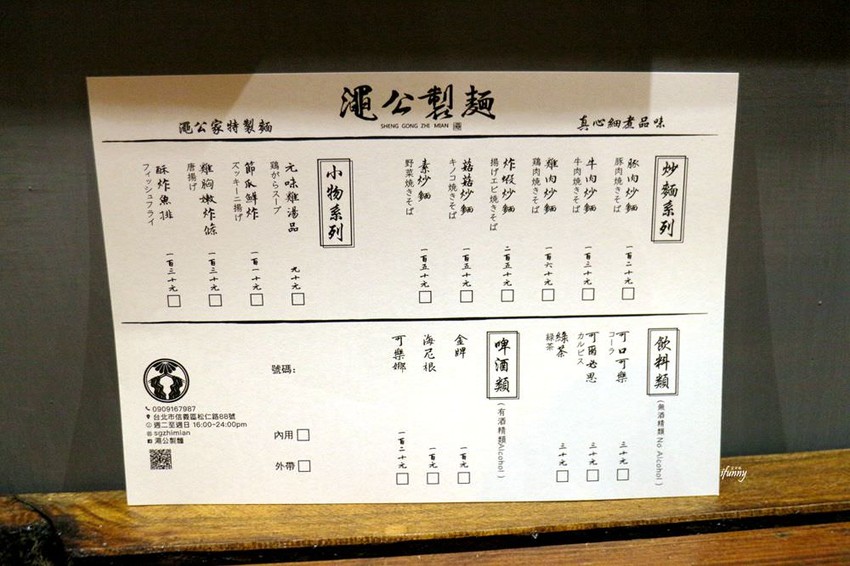 澠公製麵
SHENG GONG ZHI MIAN
澠公家特製麵
真心細煮品味
炒麵系列
豚肉炒麵
豚肉焼きそば
一百二十元
牛肉炒麵
牛肉焼きそば
一百三十元
雞肉炒麵
鶏肉焼きそば
一百六十元
炸蝦炒麵
揚げエビ焼きそば
二百五十元
菇菇炒麵
キノコ焼きそば
一百五十元
素炒麵
野菜焼きそば
一百五十元
小物系列
元味雞湯品
鶏がらスープ
九十元
節瓜鮮炸
ズッキーニ揚げ
一百一十元
雞胸嫩炸條
唐揚げ
一百三十元
酥炸魚排
フィッシュフライ
一百三十元
飲料類
(無酒精類 No Alcohol)
可口可樂
コーラ
三十元
可爾必思
カルピス
三十元
綠茶
緑茶
三十元
啤酒類
(有酒精類Alcohol)
金牌
一百元
海尼根
一百元
可樂娜
一百二十元
號碼:
內用
外帶
0909167987
台北市信義區松仁路88號
週二至週日 16:00-24:00pm
sgzhimian
澠公製麵
ifunny